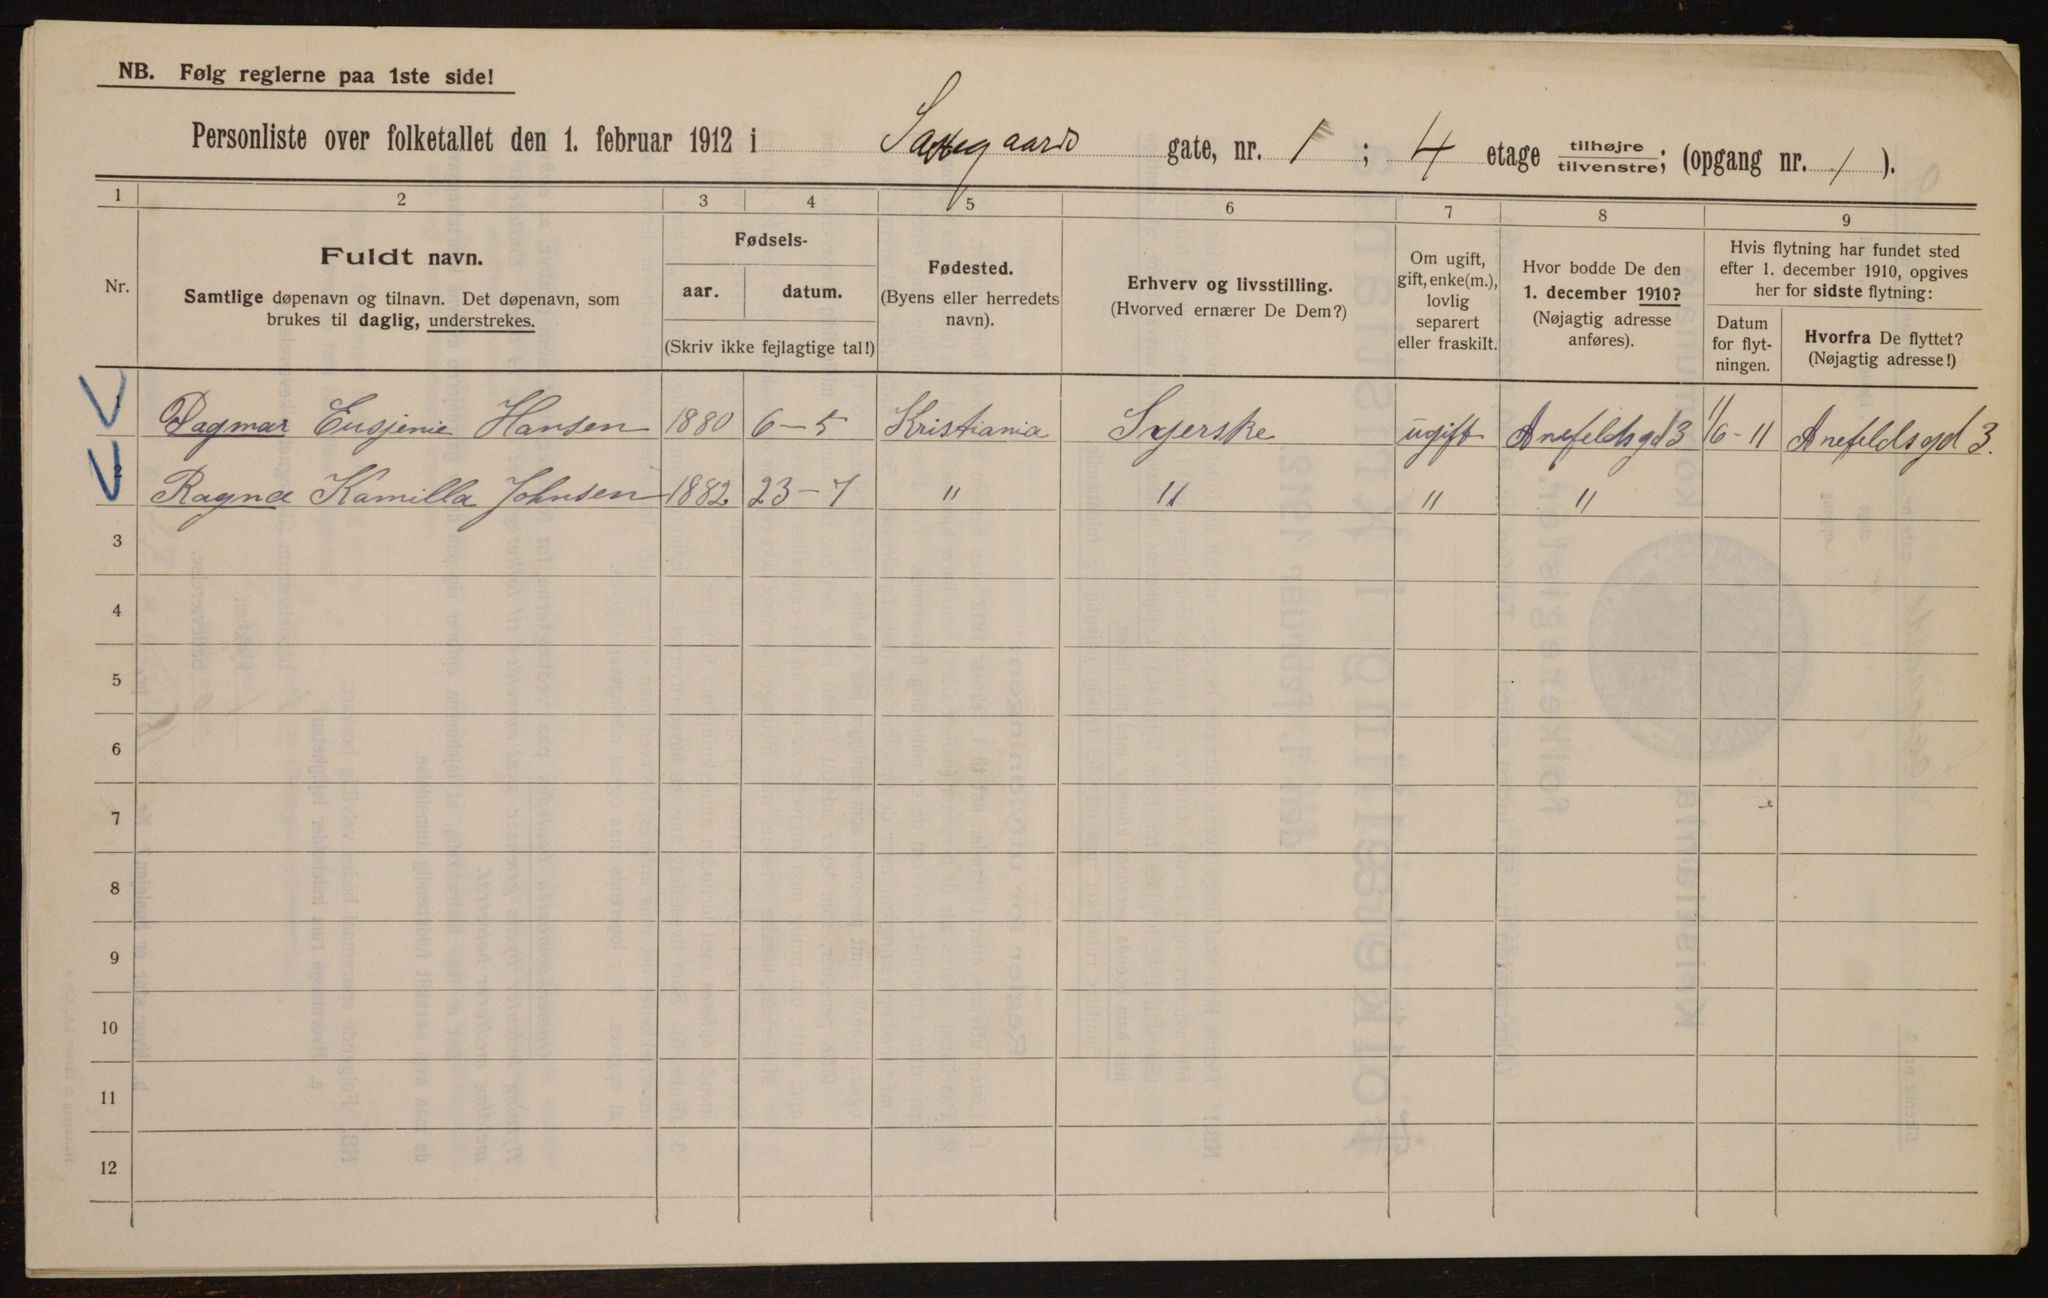 NB. Følg reglerne paa 1ste side!
Personliste over folketallet den 1. februar 1912 i gate, nr. 1; 4 etage tilhøjre/tilvenstre; (opgang nr. 1).
1 2 3 4 5 6 7 8 9
Nr.
Fuldt navn.
Samtlige døpenavn og tilnavn. Det døpenavn, som
brukes til daglig, understrekes.
Fødsels-
aar. datum.
(Skriv ikke fejlagtige tal!)
Fødested.
(Byens eller herredets
navn).
Erhverv og livsstilling.
(Hvorved ernærer De Dem?)
Om ugift,
gift, enke(m.),
lovlig
separert
eller fraskilt.
Hvor bodde De den
1. december 1910?
(Nøjagtig adresse
anføres).
Hvis flytning har fundet sted
efter 1. december 1910, opgives
her for sidste flytning:
Datum
for flyt-
ningen.
Hvorfra De flyttet?
(Nøjagtig adresse!)
Dagmar Eusjenie Hansen 1880 6-5 Kristiania Syerske ugift Anefeldsgd 3 11/6-11 Anefeldsgd 3.
2 Ragna Kamilla Johnsen 1882 23-7 " " " "
3
4
5
6
7
8
9
10
11
12